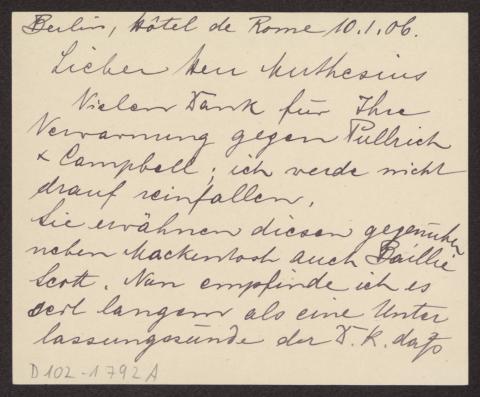 Berlin, Hôtel de Rome 10.1.06.
Lieber Herr Muthesius
Vielen Dank für Ihre
Verwarnung gegen Pullrich
& Campbell; ich werde nicht
drauf reinfallen.
Sie erwähnen diesen gegenüber
neben Mackentosh auch Baillie
Scott. Nun empfinde ich es
seit langem als eine Unter
lassungssünde der D.K. daß
D 102-1792 A